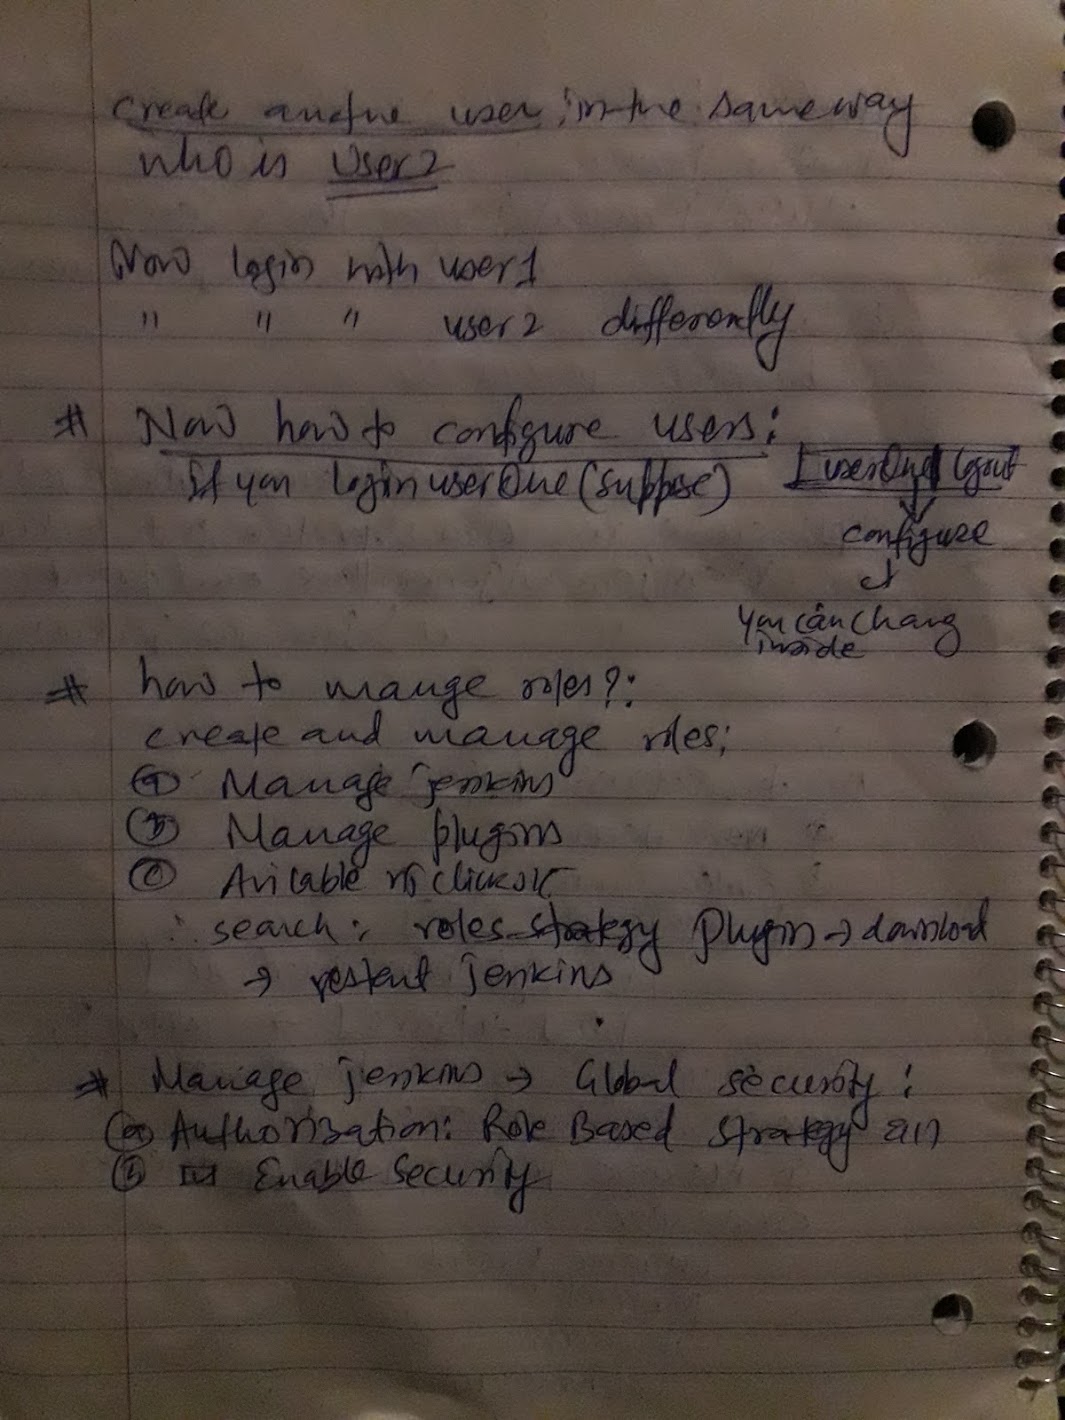 create anothe user in the same way
who is user2
Now login with user1
" " " user2 differently
# Now how to configure users:
If you login userOne (suppose)
userOne | logout
configure
You can chang
inside
# how to mange roles?:
create and manage roles;
(a) Manage jenkins
(b) Manage plugins
(c) Avilable
search: roles strategy plugin → download
→ restart jenkins
# Manage jenkins → Global security:
(a) Authorisation: Role Based strategy
(b) ☑ Enable security